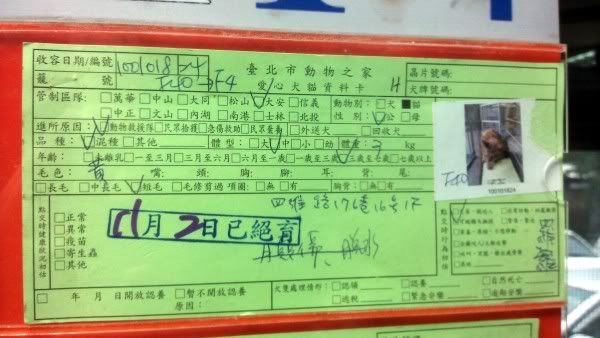 收容日期/編號 1001018-24 臺北市動物之家 晶片號碼:
籠 號 F40→F4 愛心犬貓資料卡 H 犬牌號碼:
管制區隊: □萬華□中山□大同□松山□大安□信義 動物別:□犬■貓
□中正□文山□內湖□南港□士林□北投 性別:□公□母
進所原因:□動物救援隊□民眾拾獲□急傷救助□民眾棄養 □外送犬 □回收犬
品種:□混種□其他 體型:□大□中□小□幼 體重:3 kg
年齡:□未離乳□一至三月□三月至六月□六月至一歲□一歲至三歲□三歲至七歲□七歲以上
毛色:黃 嘴: 頭: 胸: 腳: 耳: 背: 尾:
□長毛□中長毛□短毛□毛修剪過 項圈:□無□有 胸背:□無□有
F40
100101824
四維路176巷16号1F
點交時健康狀況初估
□正常
□異常
□疫苗
□寄生蟲
□其他
11月2日已絕育
點交時行為初估
□ 年 月 日開放認養 □暫不開放認養
原因:
犬隻處理情形:□認領 □認養 □自然死亡
□逃脫 □緊急安樂 □逾期安樂